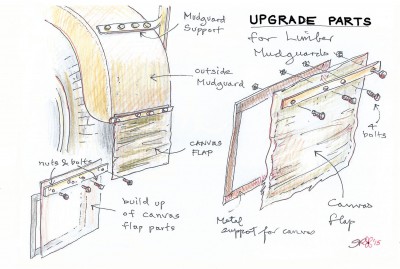 UPGRADE PARTS
for Limber
Mudguards
Mudguard
Support
outside
Mudguard
CANVAS
FLAP
nuts & bolts
build up
of canvas
flap parts
4
bolts
Canvas
flap
Metal
support for canvas